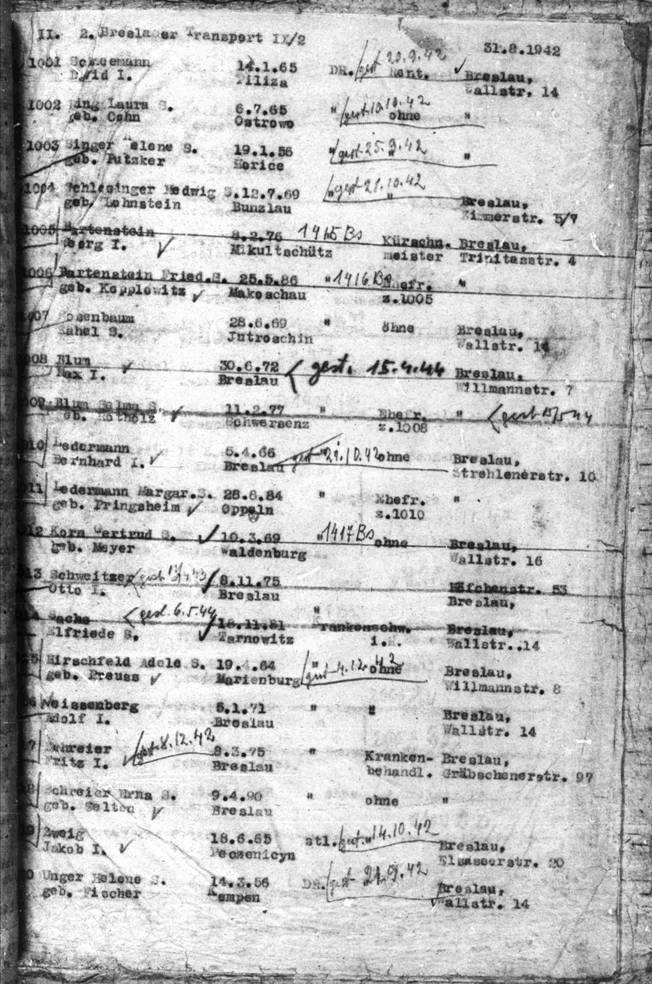 II. 2. Breslauer Transport IX/2 31.8.1942
1001 14.1.65 DR. gest 20.9.42 Rent. Breslau,
David I. Piliza Wallstr. 14
1002 Ring Laura S. 6.7.65 " gest 10.10.42 ohne "
geb. Cohn Ostrowo
1003 Singer Helene S. 19.1.56 " gest 25.9.42 " "
geb. Putzker Horice
1004 Schlesinger Hedwig S. 12.7.69 " gest 21.10.42 " Breslau,
geb. Lohnstein Bunzlau Zimmerstr. 5/7
1005 Bartenstein 8.2.76 1415 Bs Kürschn. Breslau,
Georg I. Mikultschütz meister Trinitasstr. 4
1006 Bartenstein Fried.S. 25.5.86 " 1416 Bs Ehefr. "
geb. Kopplowitz Makoschau z.1005
007 Rosenbaum 28.6.69 " ohne Breslau,
Rahel S. Jutroschin Wallstr. 14
008 Blum 30.6.72 gest. 15.4.44 Breslau,
Max I. Breslau Willmannstr. 7
009 Blum Selma S. 11.2.77 " Ehefr. " gest
geb. Rotholz Schwersenz z.1008
010 Ledermann 5.4.66 gest 21.10.42 ohne Breslau,
Bernhard I. Breslau Strehlenerstr. 10
011 Ledermann Margar.S. 28.6.84 " Ehefr. "
geb. Pringsheim Oppeln z.1010
12 Korn Gertrud S. 10.3.69 " 1417 Bs ohne Breslau,
geb. Meyer Waldenburg Wallstr. 16
13 Schweitzer gest 8.11.75 Höfchenstr. 53
Otto I. Breslau Breslau,
Sachs gest. 6.5.44 18.11.81 " Krankenschw. Breslau,
Elfriede S. Tarnowitz i.R. Wallstr..14
Hirschfeld Adele S. 19.4.64 " gest 4.12.42 ohne Breslau,
geb. Preuss Marienburg Willmannstr. 8
Weissenberg 5.1.71 " " Breslau,
Adolf I. Breslau Wallstr. 14
7 Schreier gest. 8.12.42 8.3.75 " Kranken- Breslau,
Fritz I. Breslau behandl. Gräbschenerstr. 97
8 Schreier Erna S. 9.4.90 " ohne "
geb. Selten Breslau
9 Zweig 18.6.65 stl. gest 14.10.42 Breslau,
Jakob I. Peczenicyn Elsasserstr. 20
0 Unger Helene S. 14.3.56 DR. gest 21.9.42 Breslau,
geb. Fischer Kempen Wallstr. 14